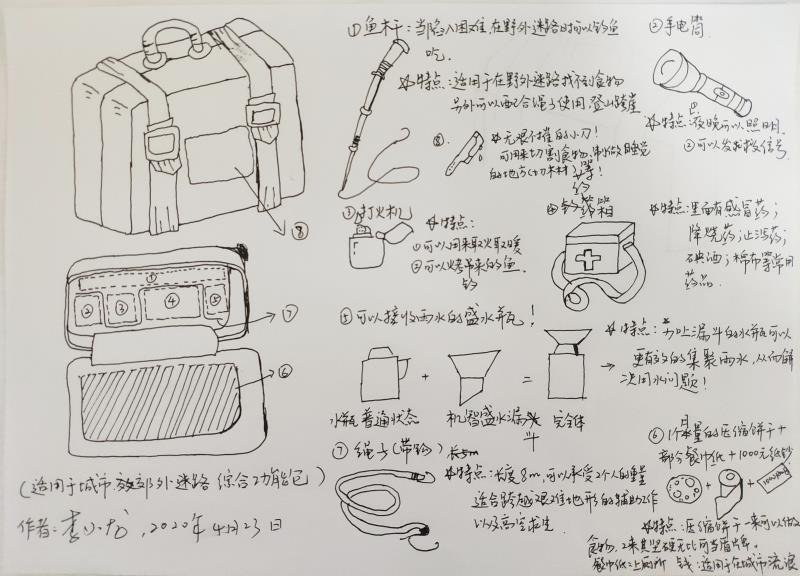 ①鱼木干:当陷入困难,在野外迷路时可以钓鱼
吃.
特点:适用于在野外迷路找不到食物
另外可以配合绳子使用登山跨崖
②手电筒
特点:①夜晚可以照明.
②可以发求救信号.
⑧.
无坚不摧的小刀!
可用来切割食物、制做睡觉
的地方(切木材)等!
③打火机
特点:
①可以用来取火取暖
②可以烤吊来的鱼.
钓
④药箱
特点:里面有感冒药;
降烧药;止泻药;
碘酒;棉布等常用
药品.
⑧
①
② ③ ④ ⑤
⑦
⑥
⑤可以接收雨水的盛水瓶!
特点:漏斗的水瓶可以
更有效的集聚雨水,从而解
决用水问题!
+ = →
水瓶普通状态 机智盛水漏斗 完全体
(适用于城市郊外迷路综合功能包)
作者:李小龙,2020年4月23日
⑦绳子(带钩)长8m
特点:长度8m,可以承受2个人的重量
适合跨越艰难地形的辅助作
以及高空求生.
⑥1个量的压缩饼干+
部分餐巾纸+1000元纸钞
+ +
特点:压缩饼干一来可以做
食物,2来其坚硬无比可当盾牌.
餐巾纸:上厕所 钱:适用于在城市流浪